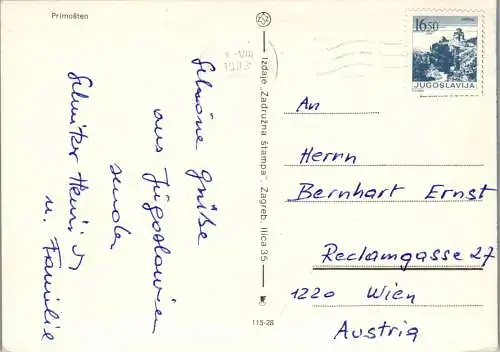 Primošten
Schöne Grüße
aus Jugoslawien
senden
Heini
u. Familie
VIII
1983
16.50
JUGOSLAVIJA
Izdaje „Zadružna štampa" Zagreb, Ilica 35
115-28
An
Herrn
Bernhart Ernst
Reclamgasse 27
1220 Wien
Austria